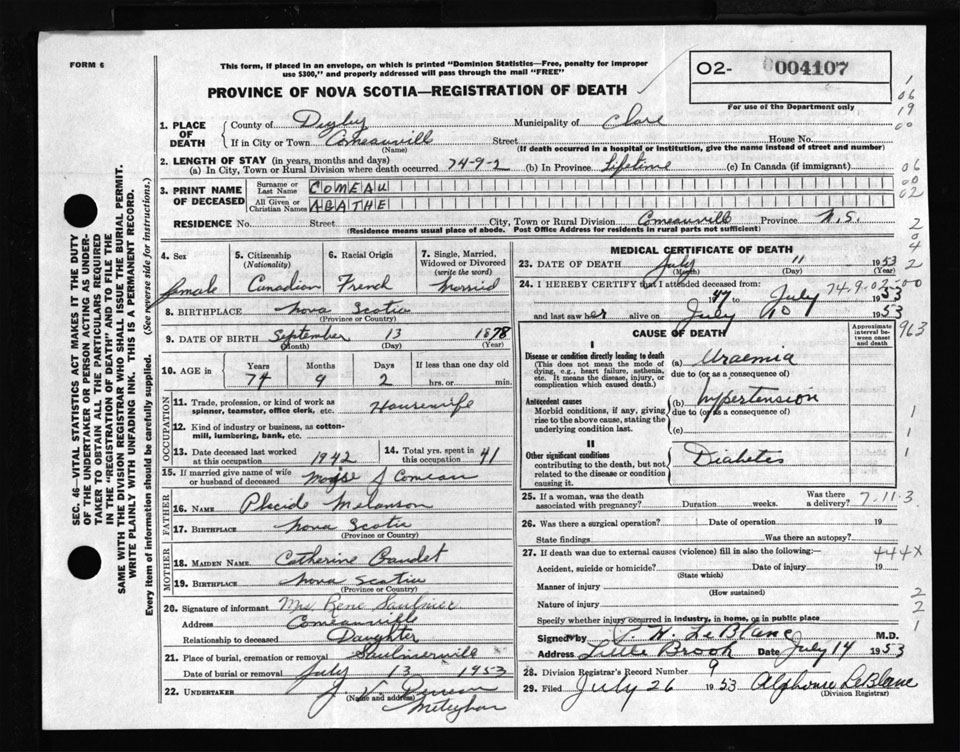 FORM 6
This form, if placed in an envelope, on which is printed "Dominion Statistics—Free, penalty for improper
use $300," and properly addressed will pass through the mail "FREE"
PROVINCE OF NOVA SCOTIA—REGISTRATION OF DEATH
O2- 004107
For use of the Department only
1. PLACE OF DEATH { County of Digby Municipality of Clare
If in City or Town Comeauville Street House No.
(Name) (If death occurred in a hospital or institution, give the name instead of street and number)
2. LENGTH OF STAY (in years, months and days)
(a) In City, Town or Rural Division where death occurred 74-9-2 (b) In Province Lifetime (c) In Canada (if immigrant)
3. PRINT NAME OF DECEASED { Surname or Last Name COMEAU
All Given or Christian Names AGATHE
RESIDENCE No. Street City, Town or Rural Division Comeauville Province N.S.
(Residence means usual place of abode. Post Office Address for residents in rural parts not sufficient)
4. Sex female
5. Citizenship (Nationality) Canadian
6. Racial Origin French
7. Single, Married, Widowed or Divorced (write the word) Married
8. BIRTHPLACE Nova Scotia
(Province or Country)
9. DATE OF BIRTH September 13 1878
(Month) (Day) (Year)
10. AGE in Years 74 Months 9 Days 2 If less than one day old hrs. or min.
OCCUPATION
11. Trade, profession, or kind of work as spinner, teamster, office clerk, etc. Housewife
12. Kind of industry or business, as cotton-mill, lumbering, bank, etc.
13. Date deceased last worked at this occupation 1942 14. Total yrs. spent in this occupation 41
15. If married give name of wife or husband of deceased Moise J Comeau
FATHER
16. Name Placide Melanson
17. Birthplace Nova Scotia
(Province or Country)
MOTHER
18. MAIDEN NAME Catherine Gaudet
19. BIRTHPLACE Nova Scotia
(Province or Country)
20. Signature of informant Mrs. Rene Saulnier
Address Comeauville
Relationship to deceased Daughter
21. Place of burial, cremation or removal Saulnierville
Date of burial or removal July 13 1953
22. UNDERTAKER J. V.
(Name and address) Meteghan
MEDICAL CERTIFICATE OF DEATH
23. DATE OF DEATH July 11 1953
(Month) (Day) (Year)
24. I HEREBY CERTIFY that I attended deceased from:
1947 to July 1953
74-9-02-00
and last saw her alive on July 10 1953
CAUSE OF DEATH
Approximate interval between onset and death
I
Disease or condition directly leading to death
(This does not mean the mode of dying, e.g., heart failure, asthenia, etc. It means the disease, injury, or complication which caused death.)
(a) Uraemia
due to (or as a consequence of)
Antecedent causes
Morbid conditions, if any, giving rise to the above cause, stating the underlying condition last.
(b) hypertension
due to (or as a consequence of)
(c)
II
Other significant conditions
contributing to the death, but not related to the disease or condition causing it.
Diabetes
25. If a woman, was the death associated with pregnancy? Duration weeks. Was there a delivery? 7-11-3
26. Was there a surgical operation? Date of operation 19
State findings Was there an autopsy?
27. If death was due to external causes (violence) fill in also the following:— 444X
Accident, suicide or homicide? Date of injury 19
(State which)
Manner of injury
(How sustained)
Nature of injury
Specify whether injury occurred in industry, in home, or in public place
Signed by W. LeBlanc M.D.
Address Little Brook Date July 14 1953
28. Division Registrar's Record Number 9
29. Filed July 26 1953 Alphonse LeBlanc
(Division Registrar)
SEC. 46—VITAL STATISTICS ACT MAKES IT THE DUTY
OF THE UNDERTAKER OR PERSON ACTING AS UNDER-
TAKER TO OBTAIN ALL THE PARTICULARS REQUIRED
IN THE "REGISTRATION OF DEATH" AND TO FILE THE
SAME WITH THE DIVISION REGISTRAR WHO SHALL ISSUE THE BURIAL PERMIT.
WRITE PLAINLY WITH UNFADING INK. THIS IS A PERMANENT RECORD.
Every item of information should be carefully supplied. (See reverse side for instructions.)
1
06
19
00
06
00
02
2
0
4
2
963
1
1
1
2
2
1